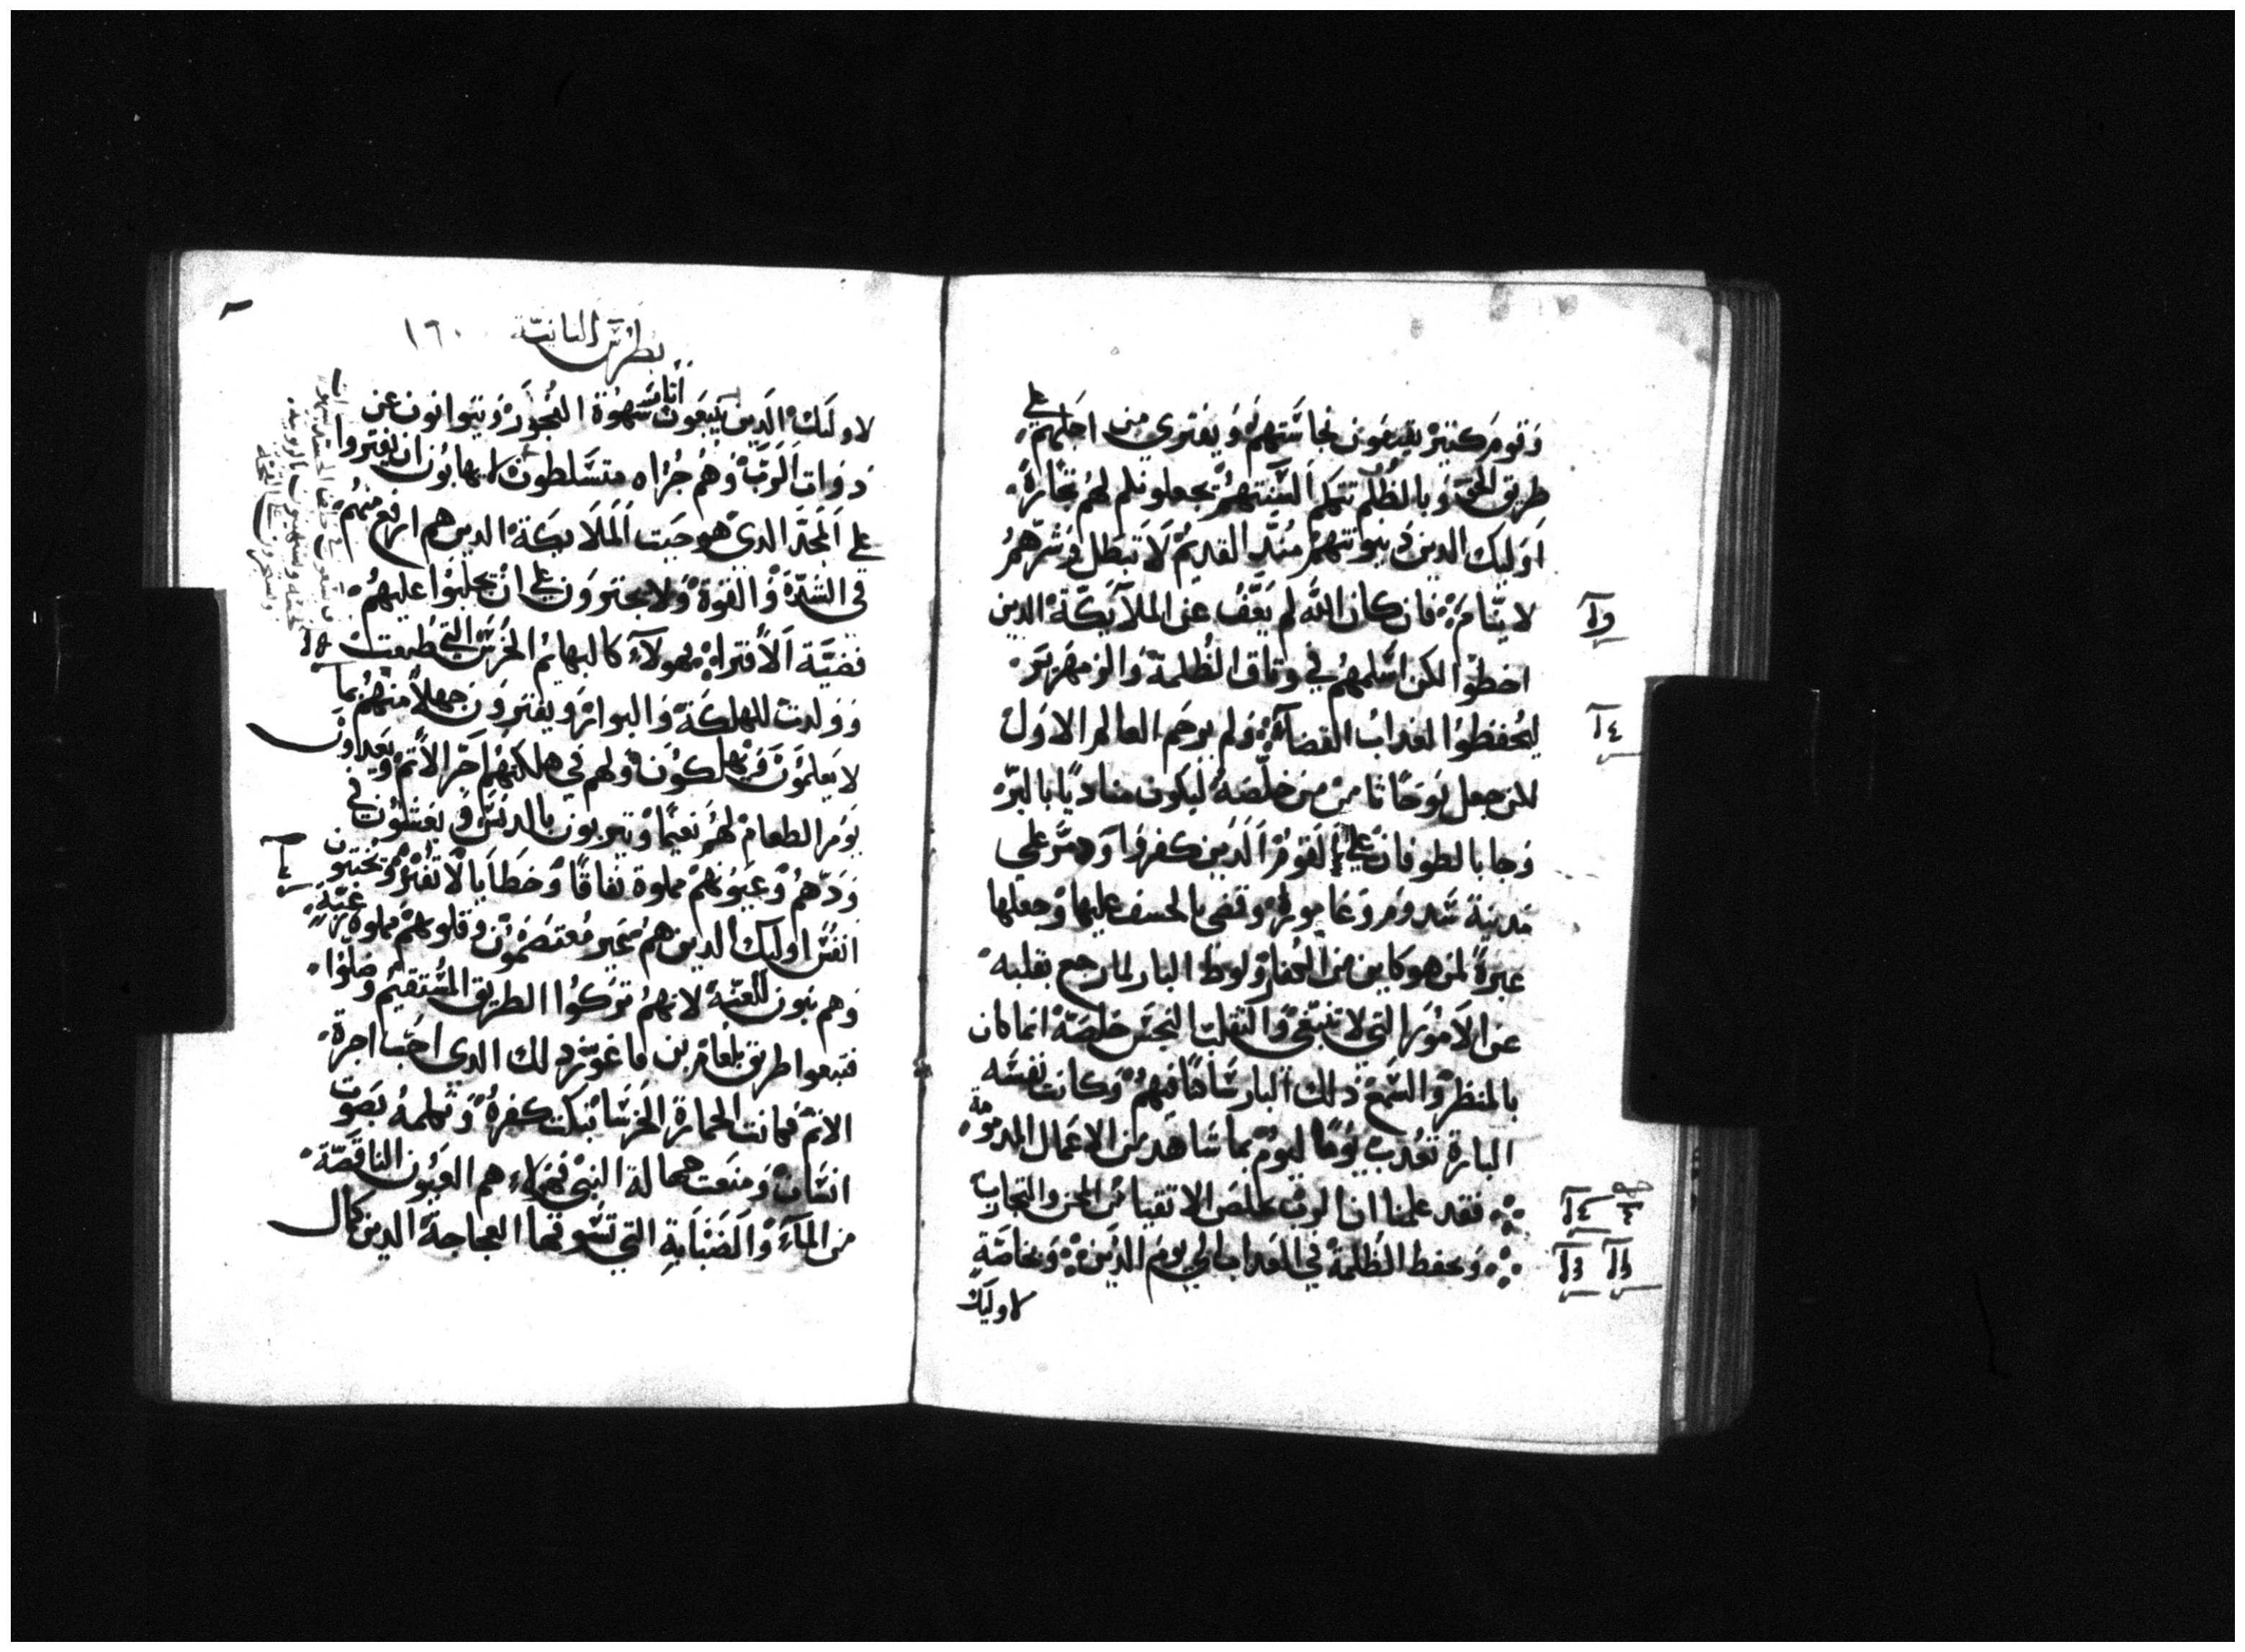 وقوم كثير يتبعون نجاستهم ويفتري من اجلهم على
طريق الحق وبالظلم تتكلم السنتهم يجعلونكم لهم تجارة
اوليك الدين دينونتهم مند القديم لا تبطل وشرهم
لا ينام فان كان الله لم يعف عن الملايكة الدين
اخطوا لكن اسلمهم في وثاق الظلمة والزمهرير
ليحفظوا لعداب القضا ولم يرحم العالم الاول
لكن جعل نوحا ثامن من خلصه ليكون مناديا بالبر
وجا بالطوفان على القوم الدين كفروا ودمر على
مدينة سدوم وغامورة وقضى بالخسف عليها وجعلها
عبرة لمن هو كاين من الكفار ولوط البار لما رجع بقلبه
عن الامور التي لا تنبغي والتقلب النجس خلصه انما كان
بالمنظر والسمع دلك البار ساكنا فيهم وكانت نفسه
البارة تعدب يوما ليوم بما شاهد من الاعمال المدمومة
فقد علمنا ان الرب يخلص الاتقيا من المحن والتجارب
ويحفظ الظلمة في العداب الي يوم الدين وبخاصة
لاوليك
بطرس الثانية ١٦٠
لاوليك الدين يتبعون انار شهوة الفجور ويتوانون عن
دوات الرب وهم جراه متسلطون لا يهابون ان يفتروا
على المجد الدي هو حيث الملايكة الدين هم ارفع منهم
في الشدة والقوة ولا يجترون على ان يجلبوا عليهم
قضية الافترا فهولاء كالبهايم الخرس التي طبعت
وولدت للهلكة والبوار ويفترون جهلا منهم بما
لا يعلمون ويهلكون ولهم في هلكتهم اجر الاثم ويعدون
يوم الطعام لهم نعيما ويتربون بالدنس ويغشون في
ودهم وعيونهم مملوة نفاقا وخطايا لا تفتر ويختبون
انفس اوليك الدين هم غير معتصمون وقلوبهم مملوة غيه
وهم بنون اللعنة لانهم تركوا الطريق المستقيم وضلوا
فتبعوا طريق بلعام بن فاغور دلك الدي احب اجرة
الاثم فكانت الحمارة الخرسا تبكت كفره وتكلمه بصوت
انسان ومنعت جهالة النبي فهولاء هم العيون الناقصة
من الماء والضبابة التي تسوقها العجاجة الدين كمال